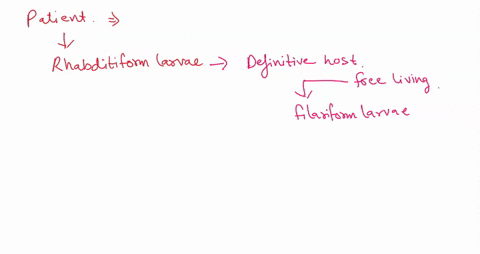 Patient. ⇒
↓
Rhabditiform larvae → Definitive host.
free living.
filariform larvae